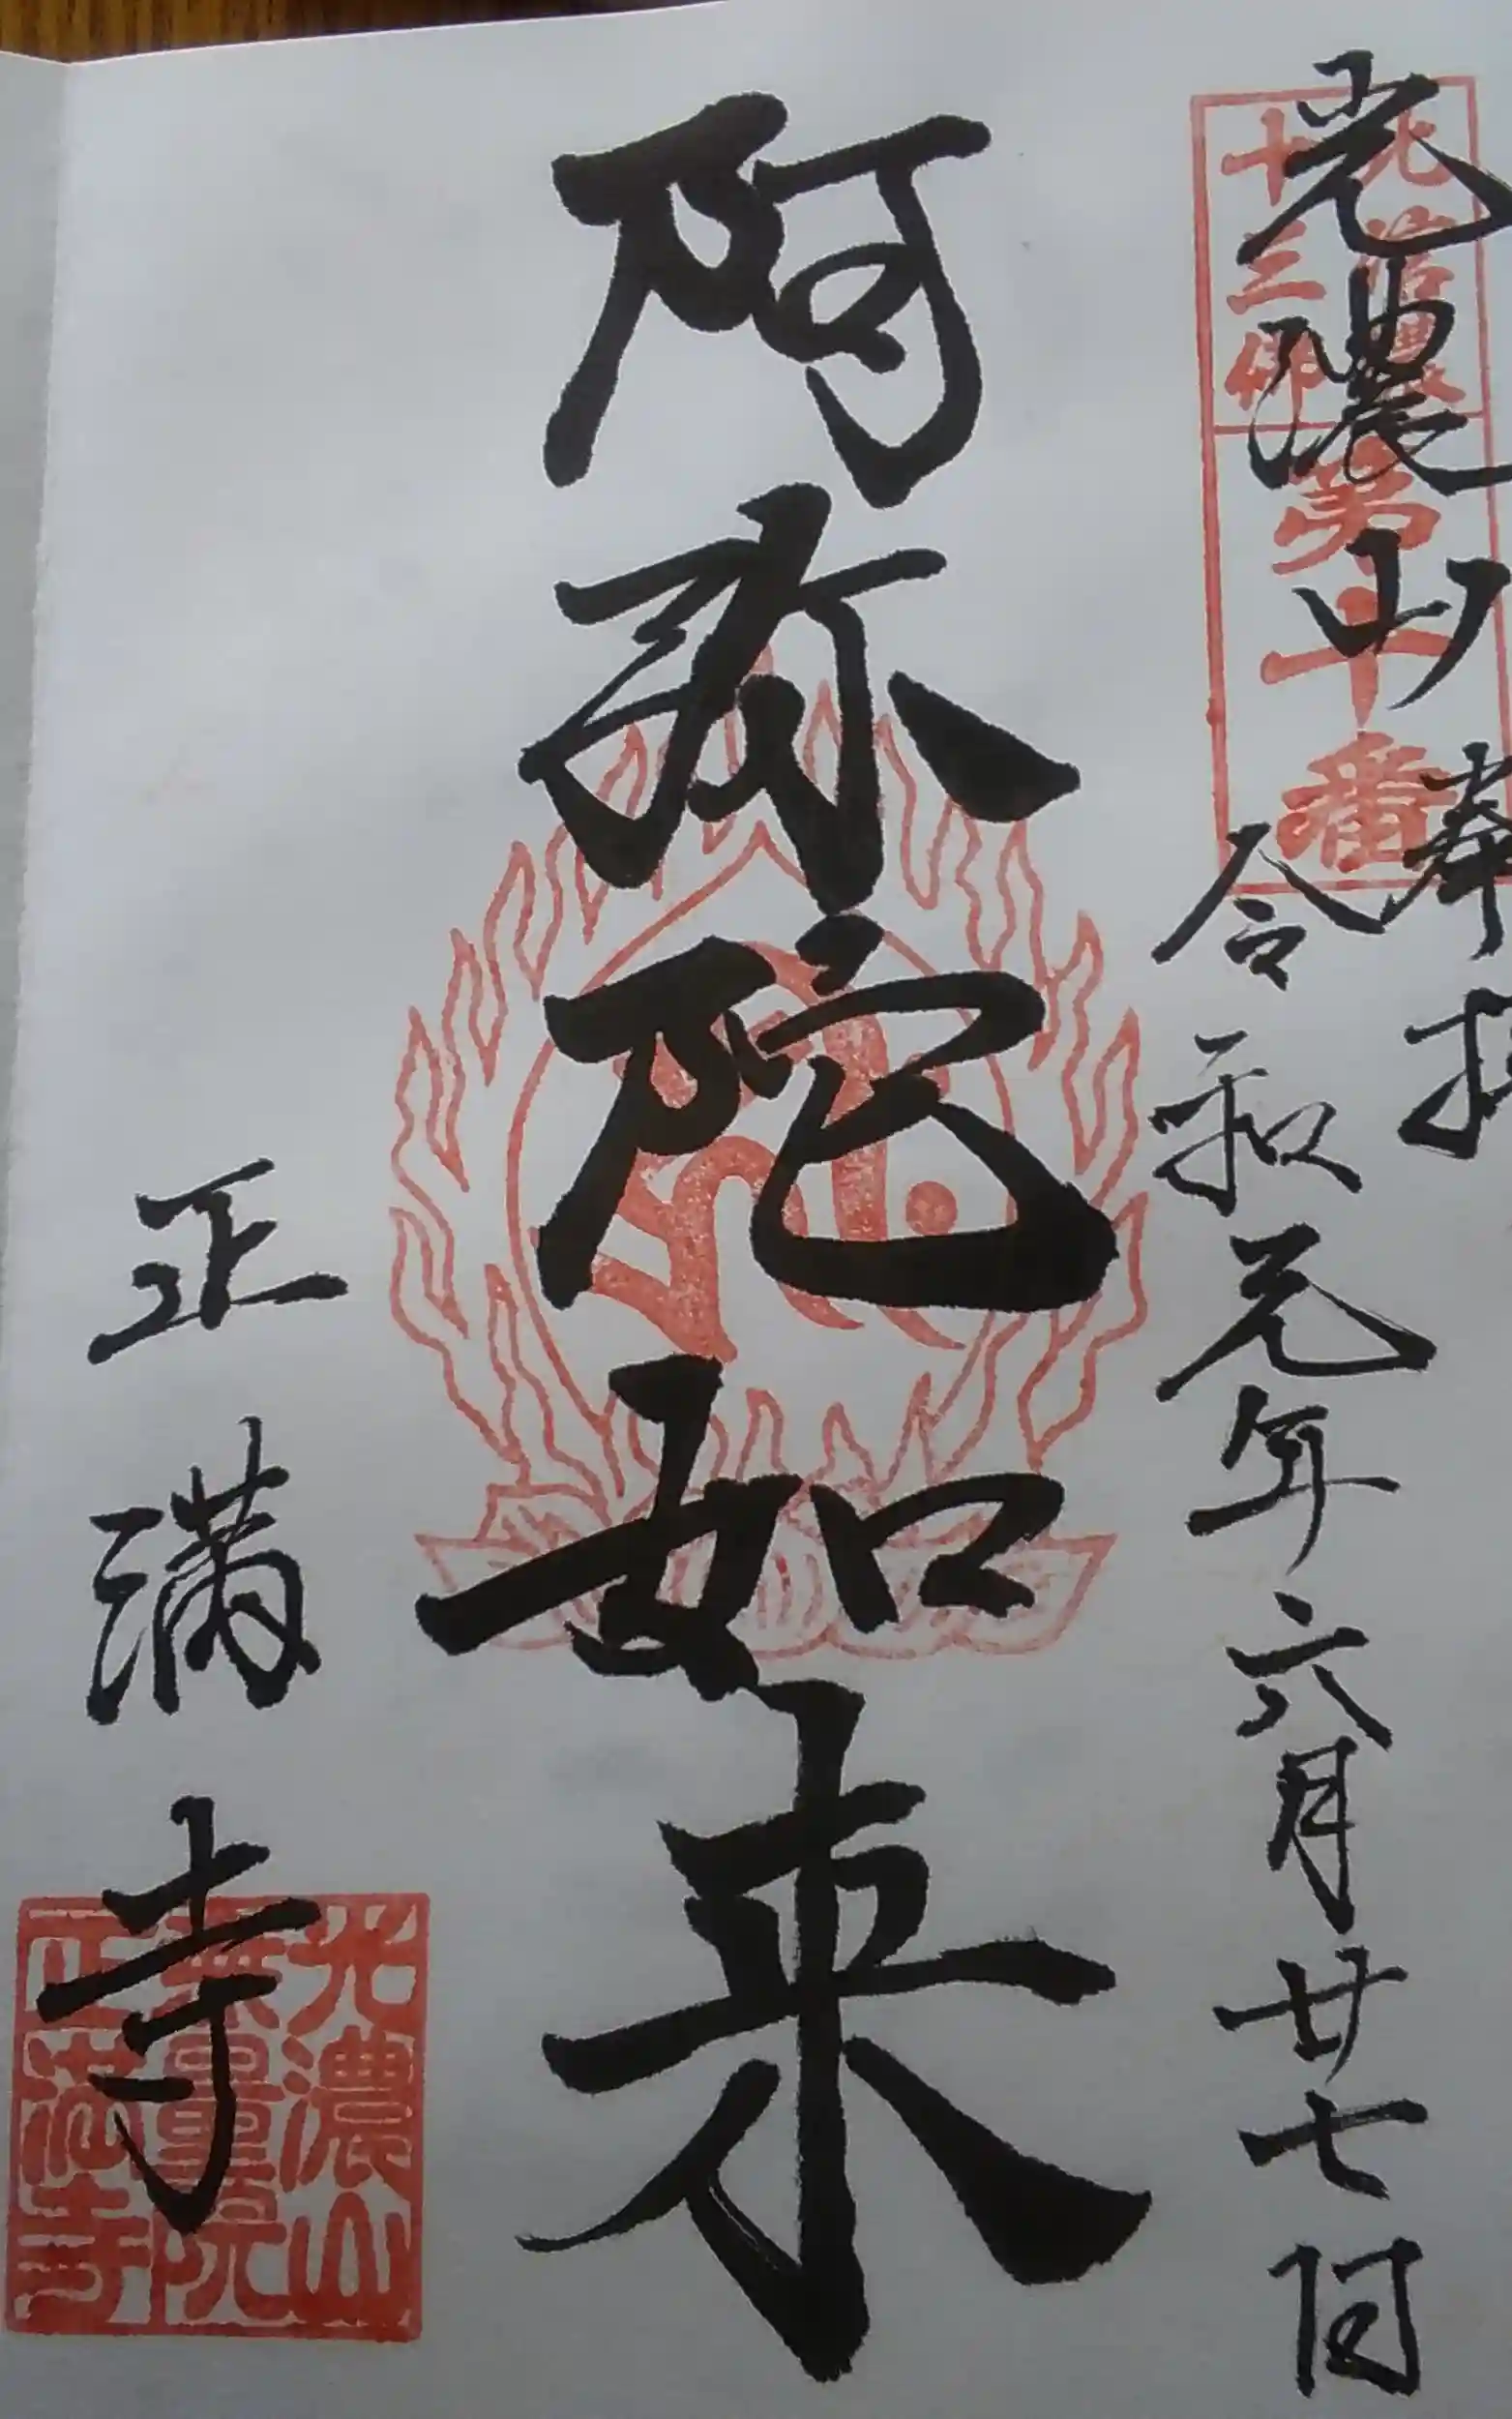 光濃山
奉拝
北信濃
十三仏
第十番
令和元年六月廿七日
阿弥陀如来
正満寺
光濃山
無量院
正満寺